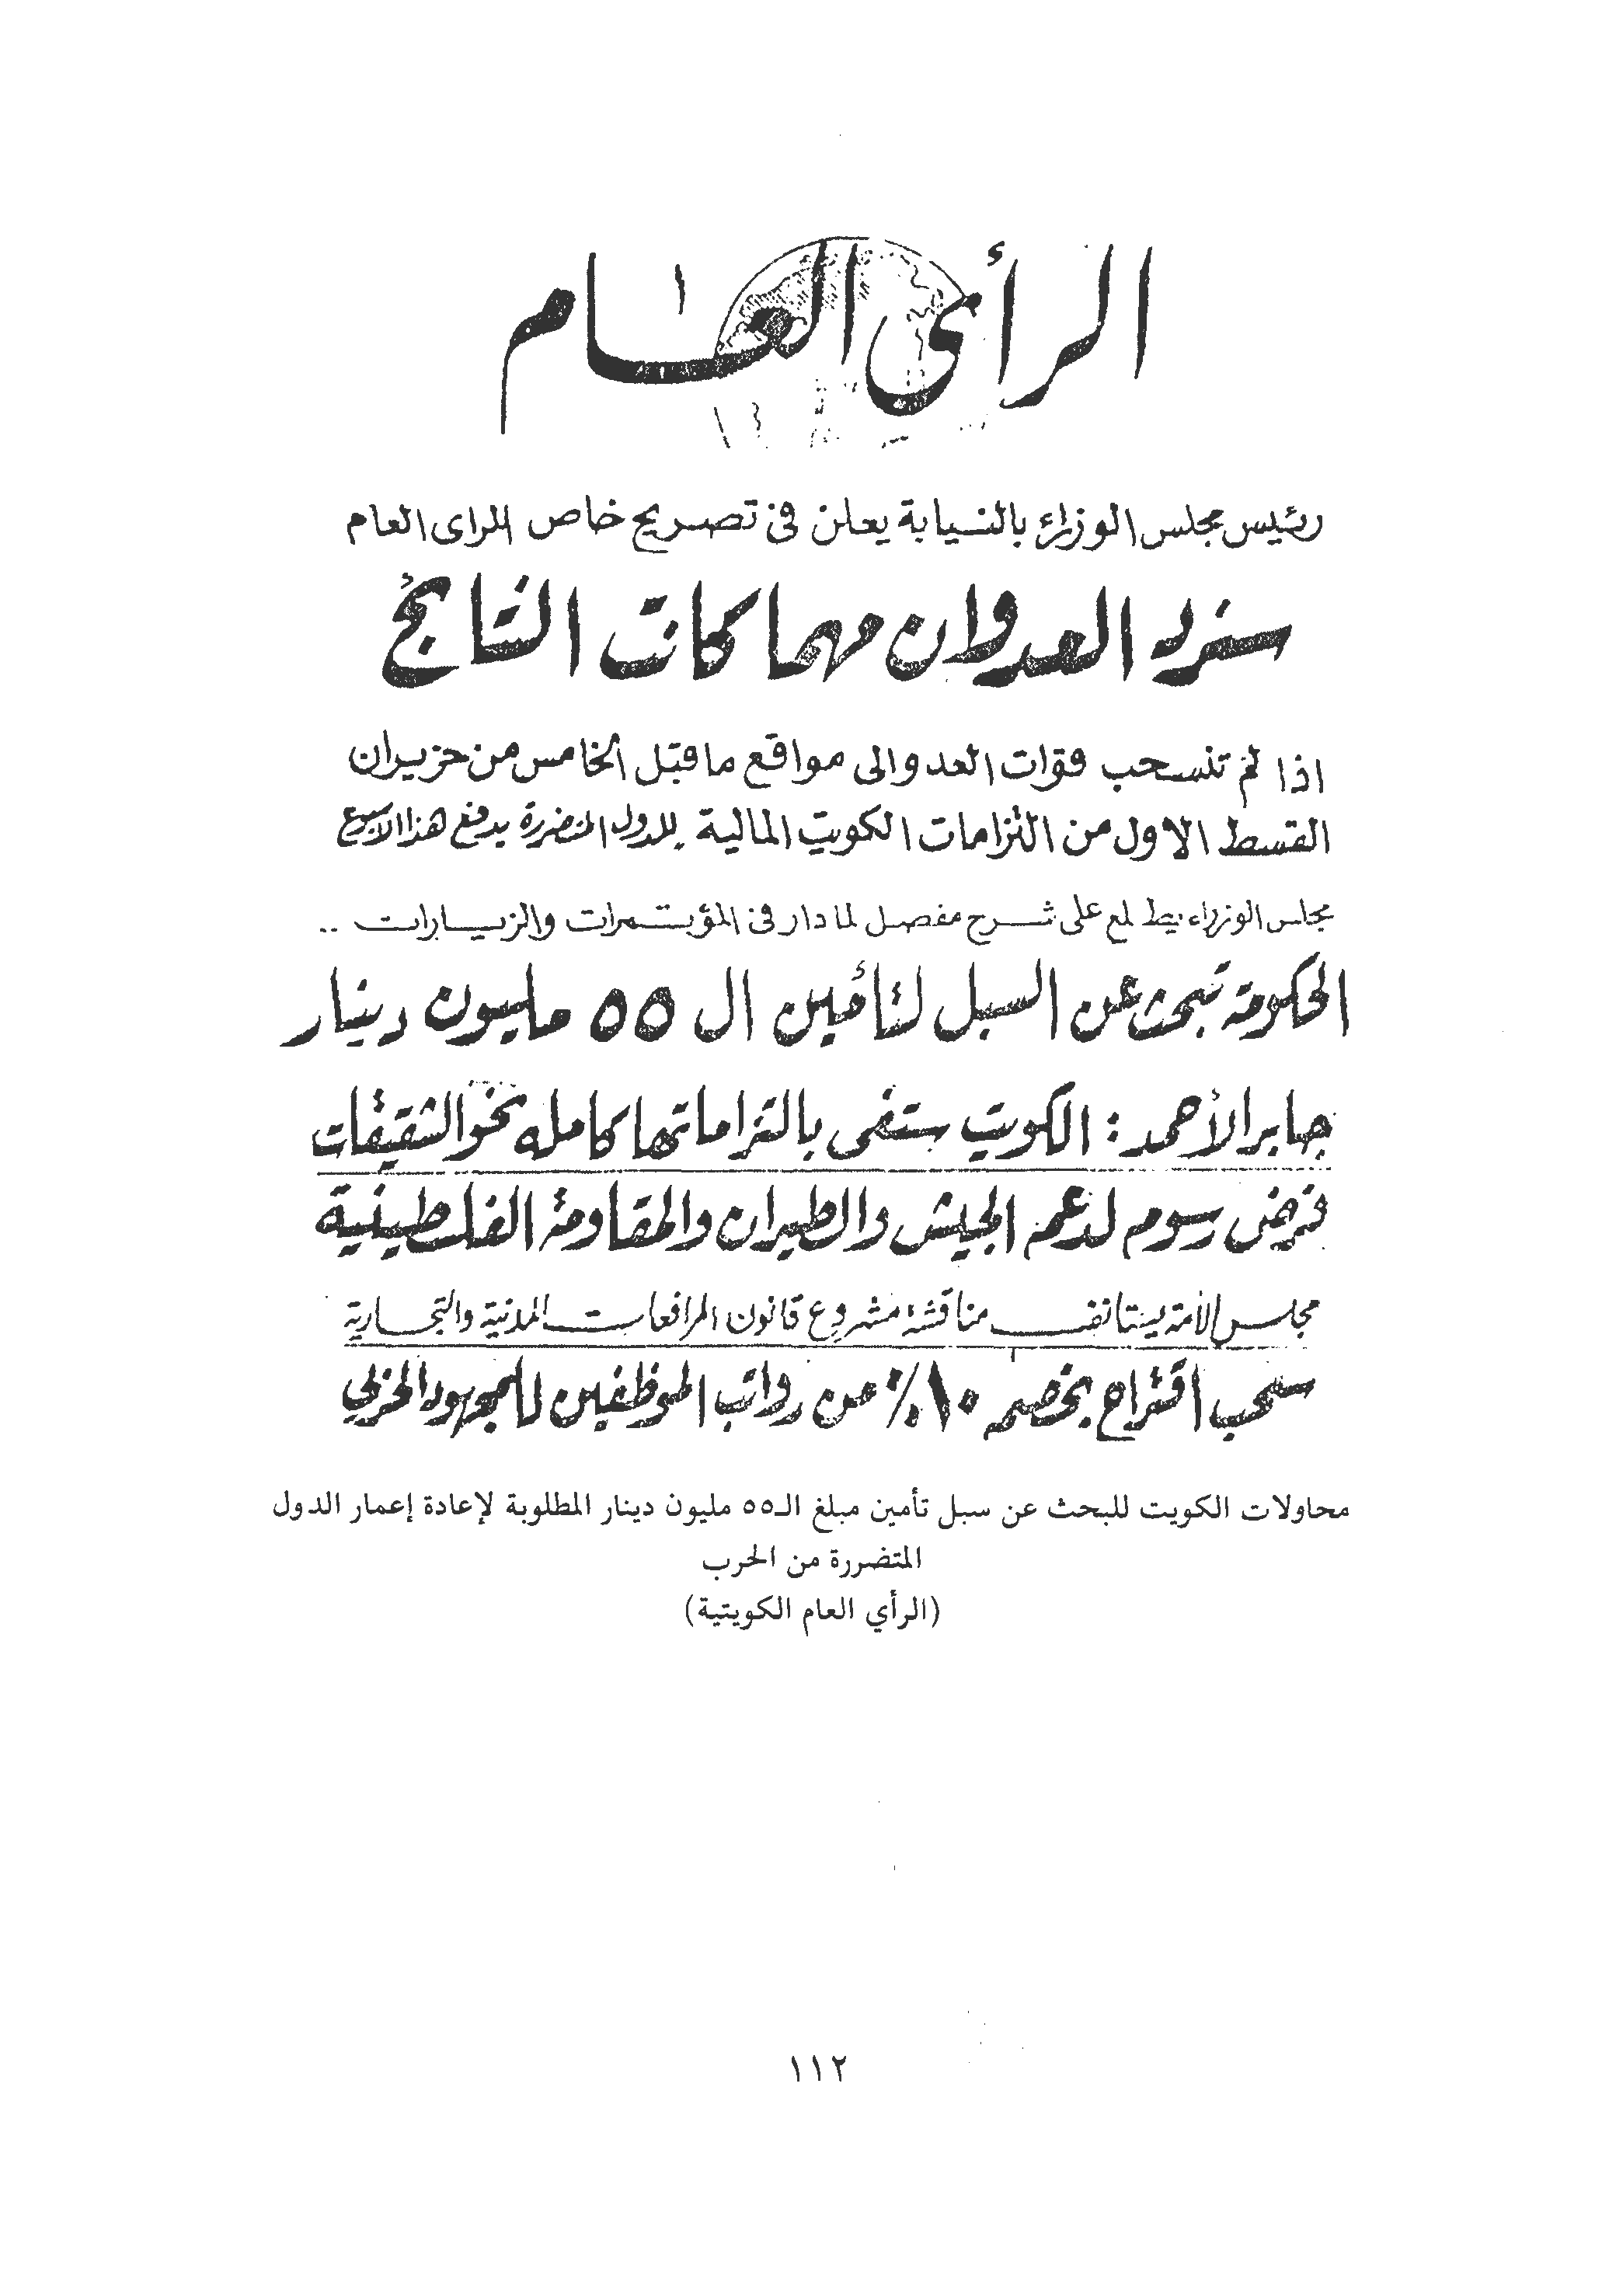 الرأي العام
رئيس مجلس الوزراء بالنيابة يعلن في تصريح خاص للراى العام
سنرد العدوان مهما كانت النتائج
اذا لم تنسحب قوات العدو الى مواقع ما قبل الخامس من حزيران
القسط الاول من التزامات الكويت المالية للدول المتضررة يدفع هذا الاسبوع
مجلس الوزراء يطلع على شرح مفصل لما دار في المؤتمرات والزيارات ..
الحكومة تبحث عن السبل لتأمين ال ٥٥ مليون دينار
جابر الأحمد : الكويت ستفى بالتزاماتها كامله نحو الشقيقات
فرض رسوم لدعم الجيش والطيران والمقاومة الفلسطينية
مجلس الأمة يستانف مناقشة مشروع قانون المرافعات المدنية والتجارية
سحب اقتراح بخصم ١٠٪ من رواتب الموظفين للمجهود الحربي
محاولات الكويت للبحث عن سبل تأمين مبلغ الـ٥٥ مليون دينار المطلوبة لإعادة إعمار الدول
المتضررة من الحرب
(الرأي العام الكويتية)
١١٢